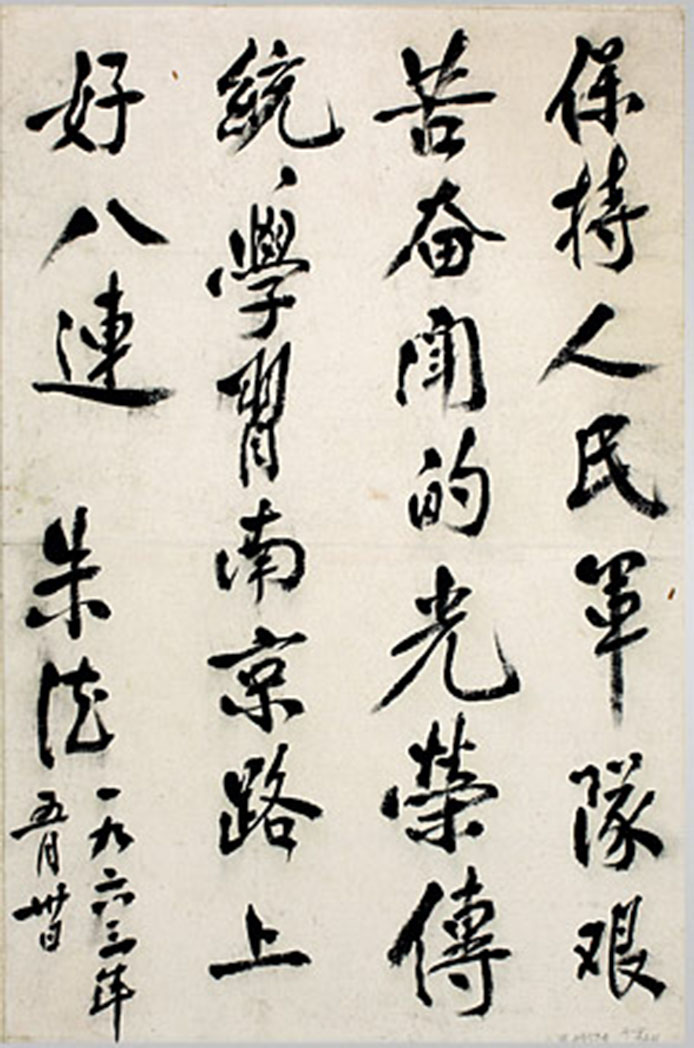 保持人民軍隊艰
苦奋闘的光榮傳
統、學習南京路上
好八連 朱德
一九六三年
五月卅日